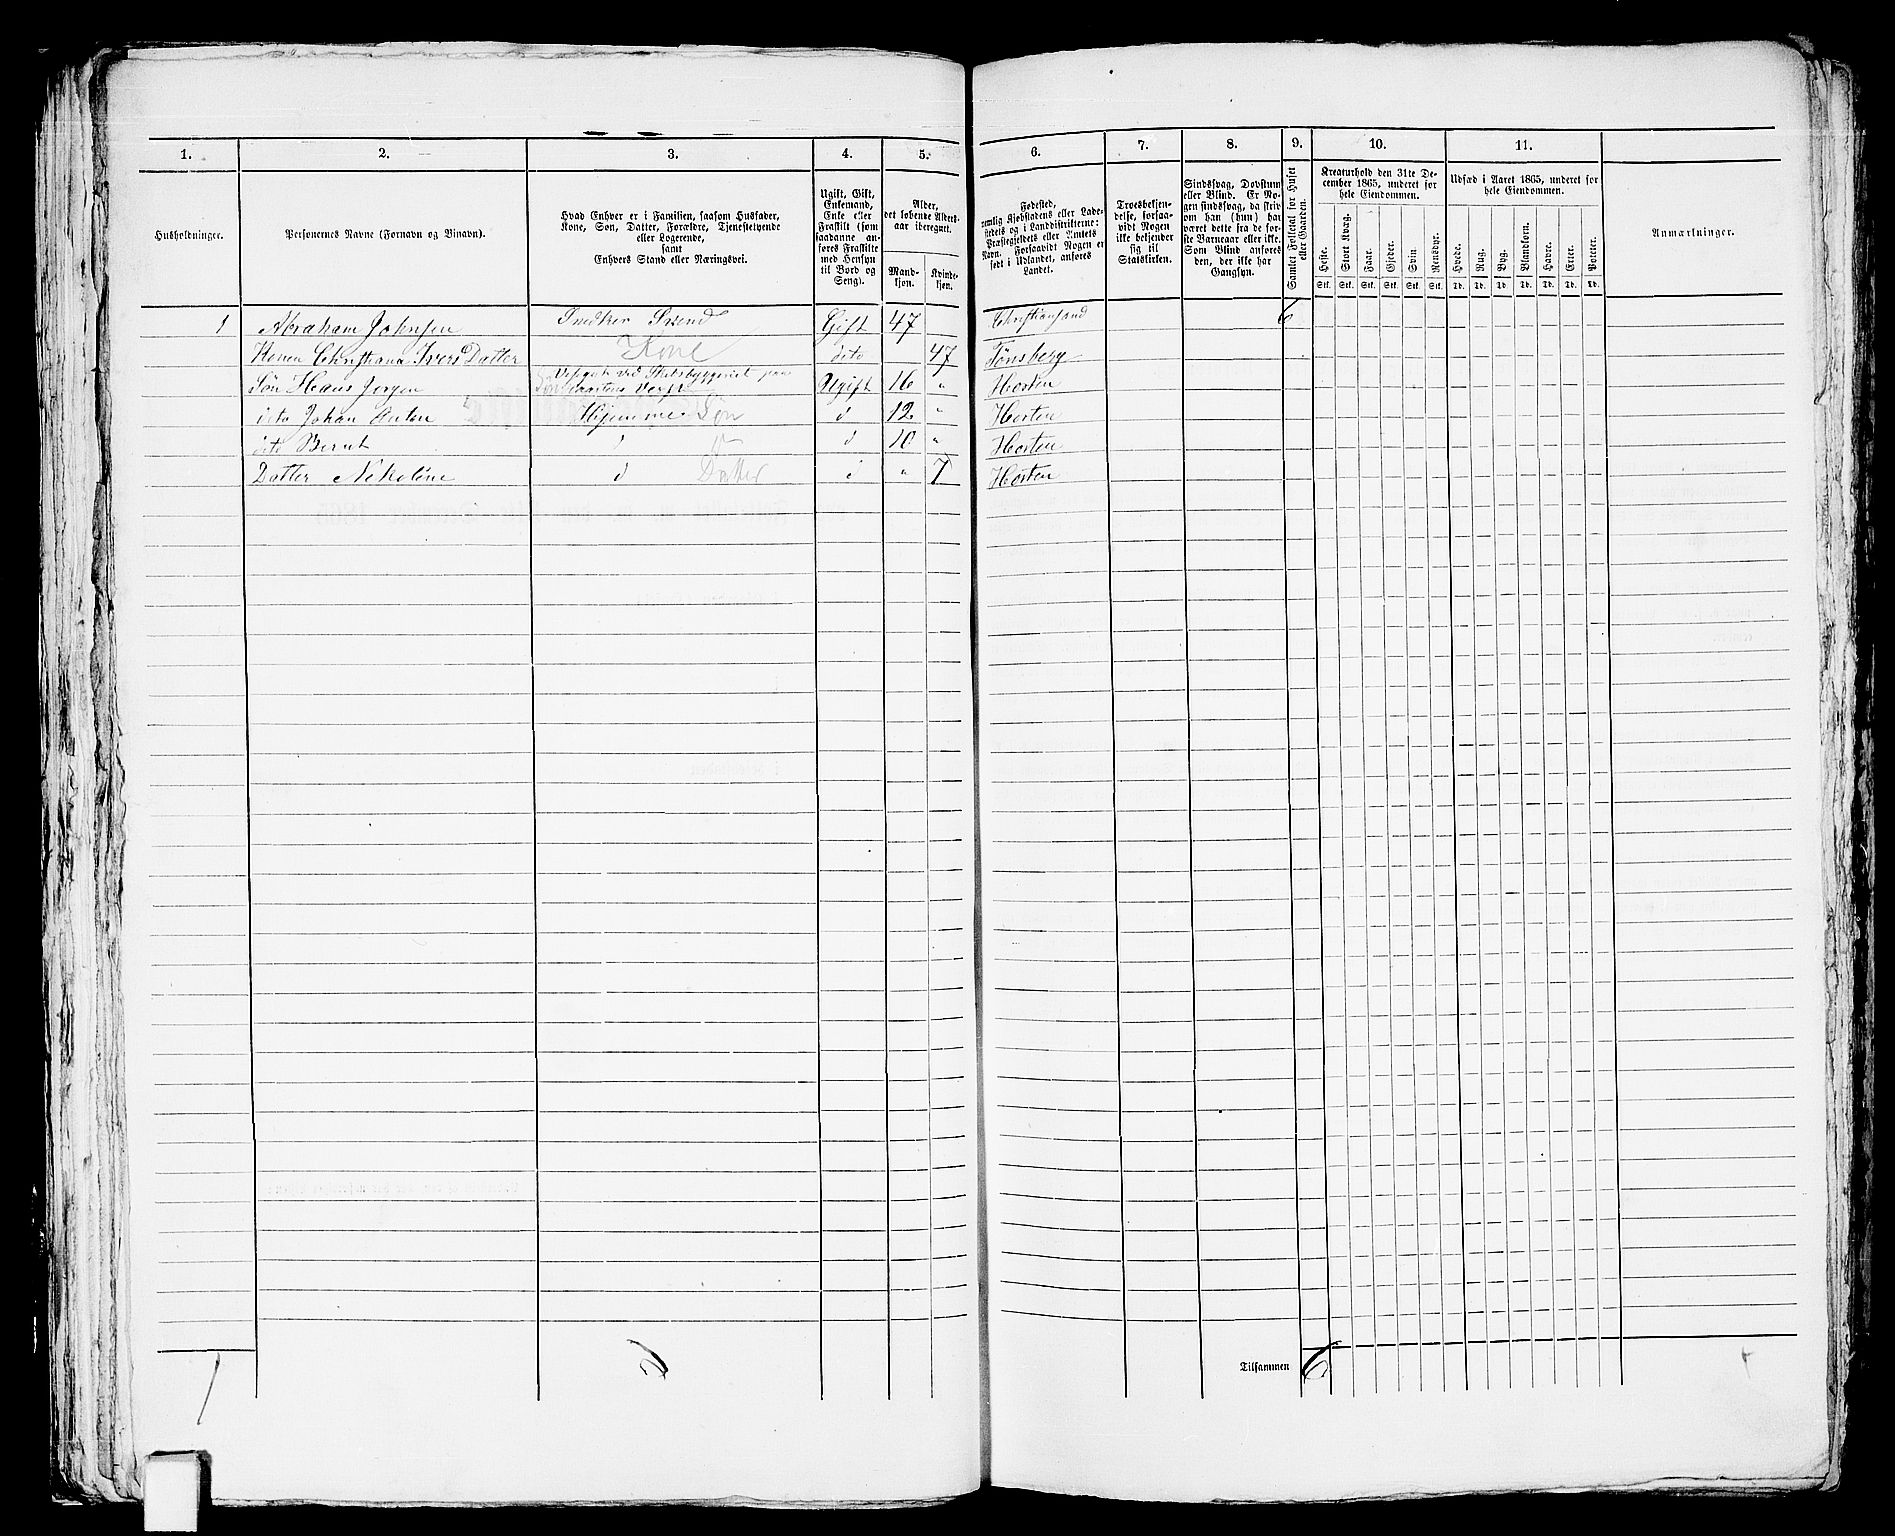 1. 2. 3. 4. 5. 6. 7. 8. 9. 10. 11.
Husholdninger.
Personernes Navne (Fornavn og Binavn).
Hvad Enhver er i Familien, saasom Husfader,
Kone, Søn, Datter, Forældre, Tjenestetyende
eller Logerende,
samt
Enhvers Stand eller Næringsvei.
Ugift, Gift,
Enkemand,
Enke eller
Fraskilt (som
saadanne an-
føres Fraskilte
med Hensyn
til Bord og
Seng).
Alder,
det løbende Alders-
aar iberegnet.
Mand-
kjøn.
Kvinde-
kjøn.
Fødested,
nemlig Kjøbstadens eller Lade-
stedets og i Landdistrikterne:
Præstegjeldets eller Annetets
Navn. Forsaavidt Nogen er
født i Udlandet, anføres
Landet.
Troesbekjen-
delse, forsaa-
vidt Nogen
ikke bekjender
sig til
Statskirken.
Sindssvag, Døvstum
eller Blind. Er No-
gen sindssvag, da skriv
om han (hun) har
været dette fra de før-
ste Barneaar eller ikke.
Som Blind anføres
den, der ikke har
Gangsyn.
Samlet Folketal for Huset
eller Gaarden.
Kreaturhold den 31te De-
cember 1865, underet for
hele Eiendommen.
Heste. Stort Kvæg. Faar. Gjeder. Svin. Rensdyr.
Stk. Stk. Stk. Stk. Stk. Stk.
Udsæd i Aaret 1865, underet for
hele Eiendommen.
Hvede. Rug. Byg. Blandkorn. Havre. Erter. Poteter.
Td. Td. Td. Td. Td. Td. Td.
Anmærkninger.
1 Abraham Johnsen Snedker Svend Gift 47 Christiansand 6
Konen Christiana Ivers Datter Kone dito 47 Tönsberg
Søn Hans Jørgen Søn Ugift 16 " Horten
dito Johan Anton Hjemme Søn d 12 " Horten
dito Bernt d d 10 " Horten
Datter Nikoline d Datter d " 7 Horten
1 6 Tilsammen 6